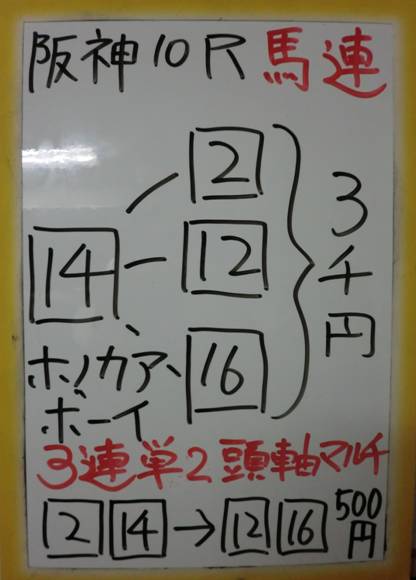 阪神10R 馬連
2
14 12 3千円
16
ホノカア、
ボーイ
3連単2頭軸マルチ
2 14→12 16 500円